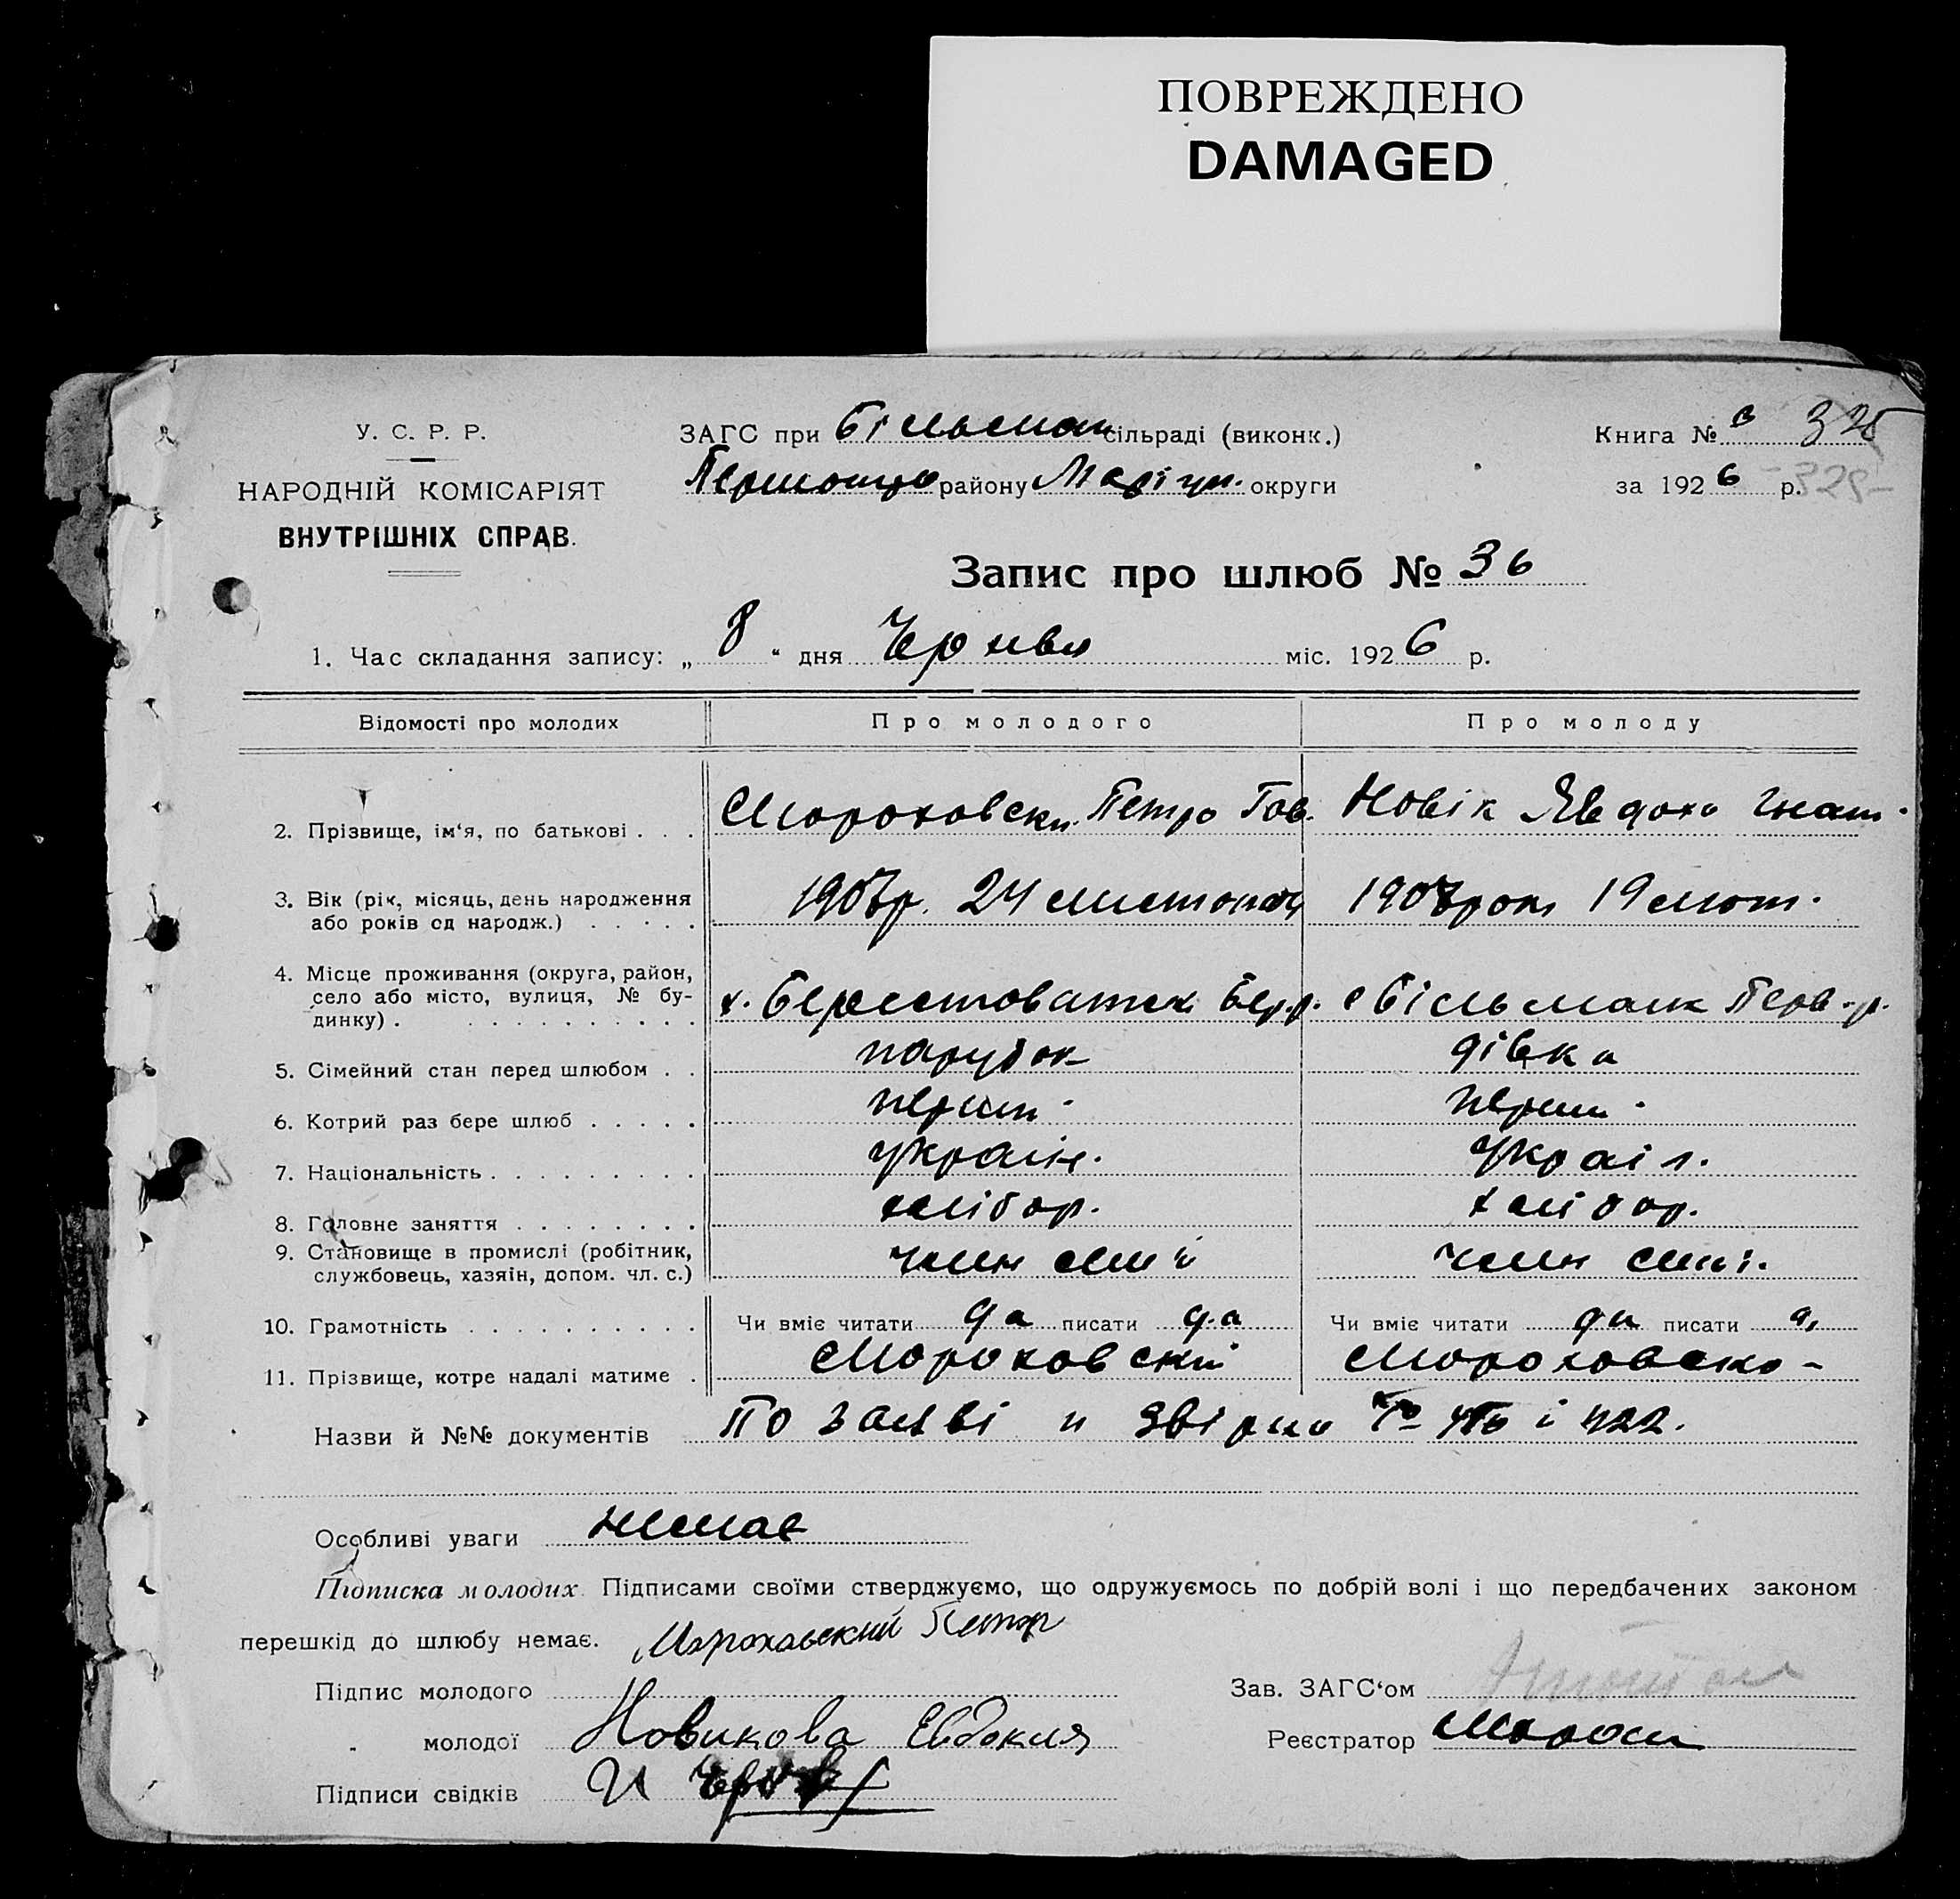 ПОВРЕЖДЕНО
DAMAGED
У. С. Р. Р.
НАРОДНІЙ КОМІСАРІЯТ
ВНУТРІШНІХ СПРАВ.
ЗАГС при Більман сільраді (виконк.)
району Маріуп. округи
Книга № 325
за 1926 р. -325-
Запис про шлюб № 36
1. Час складання запису: „ 8 “ дня Червня міс. 1926 р.
Відомості про молодих Про молодого Про молоду
2. Прізвище, ім‘я, по батькові . . . Мороховски. Петро Гов. Новік Явдоха Гнат.
3. Вік (рік, місяць, день народження
або років од народж.) . . . . . 24 листопад 19 лют.
4. Місце проживання (округа, район,
село або місто, вулиця, № бу-
динку) . . . . . . . . . . . х. Берестоватка Бер.р. с Більманк Перв.-р.
5. Сімейний стан перед шлюбом . . парубок дівка
6. Котрий раз бере шлюб . . . . . перши перши
7. Національність . . . . . . . . . україн. україн.
8. Головне заняття . . . . . . . . хлібор. хлібор.
9. Становище в промислі (робітник,
службовець, хазяін, допом. чл. с.) член сімї член сімї.
10. Грамотність . . . . . . . . . . Чи вміє читати да писати да Чи вміє читати да писати
11. Прізвище, котре надалі матиме . Мороховский Мороховско-
Назви й №№ документів По заяві и і 422.
Особливі уваги немає
Підписка молодих. Підписами своїми стверджуємо, що одружуємось по добрій волі і що передбачених законом
перешкід до шлюбу немає. Мороховский Петор
Підпис молодого Зав. ЗАГС‘ом
„ молодої Новикова Евдокия Реєстратор
Підписи свідків И